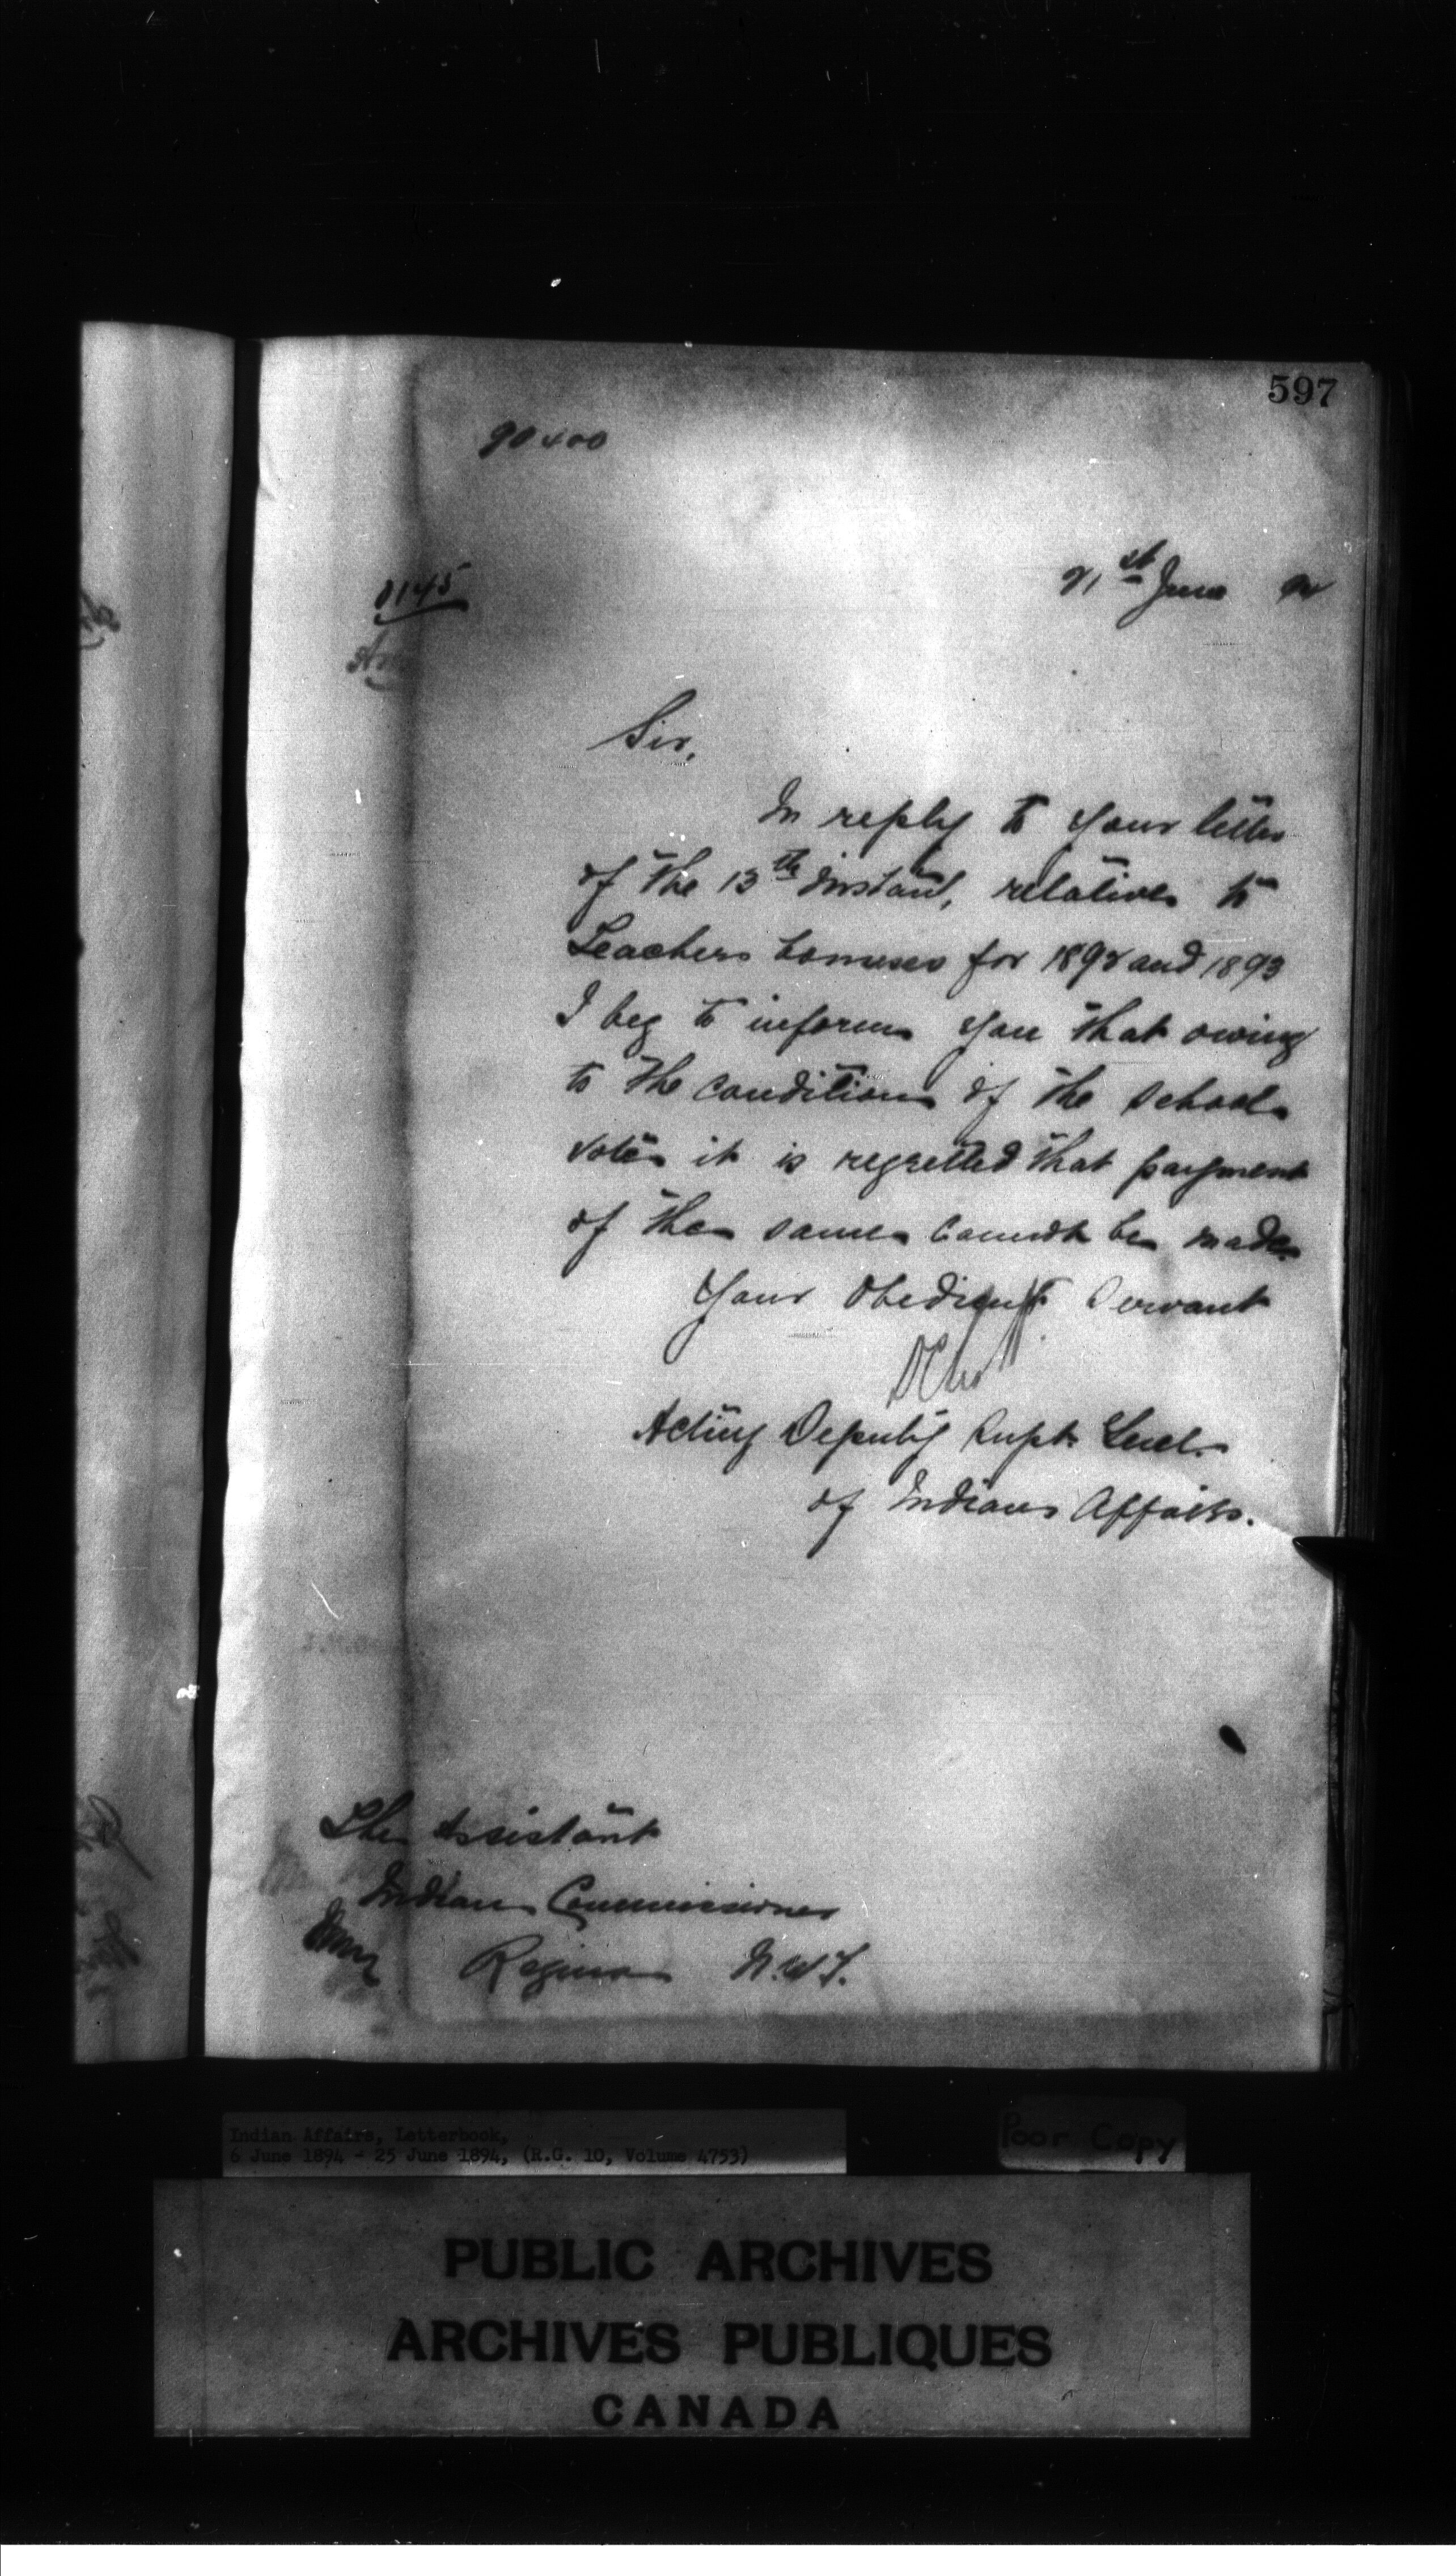 597
90400
21st June 94
Sir,
In reply to your letter
of the 13th instant, relative to
Teachers bonuses for 1892 and 1893
I beg to inform you that owing
to the condition of the school
vote it is regretted that payment
of the same cannot be made
Your Obedient Servant
Acting Deputy Supt. Genl.
of Indian Affairs.
The Assistant
Indian Commissioner
Regina N.W.T.
Indian Affairs, Letterbook,
6 June 1894 - 25 June 1894, (R.G. 10, Volume 4753)
Poor Copy
PUBLIC ARCHIVES
ARCHIVES PUBLIQUES
CANADA